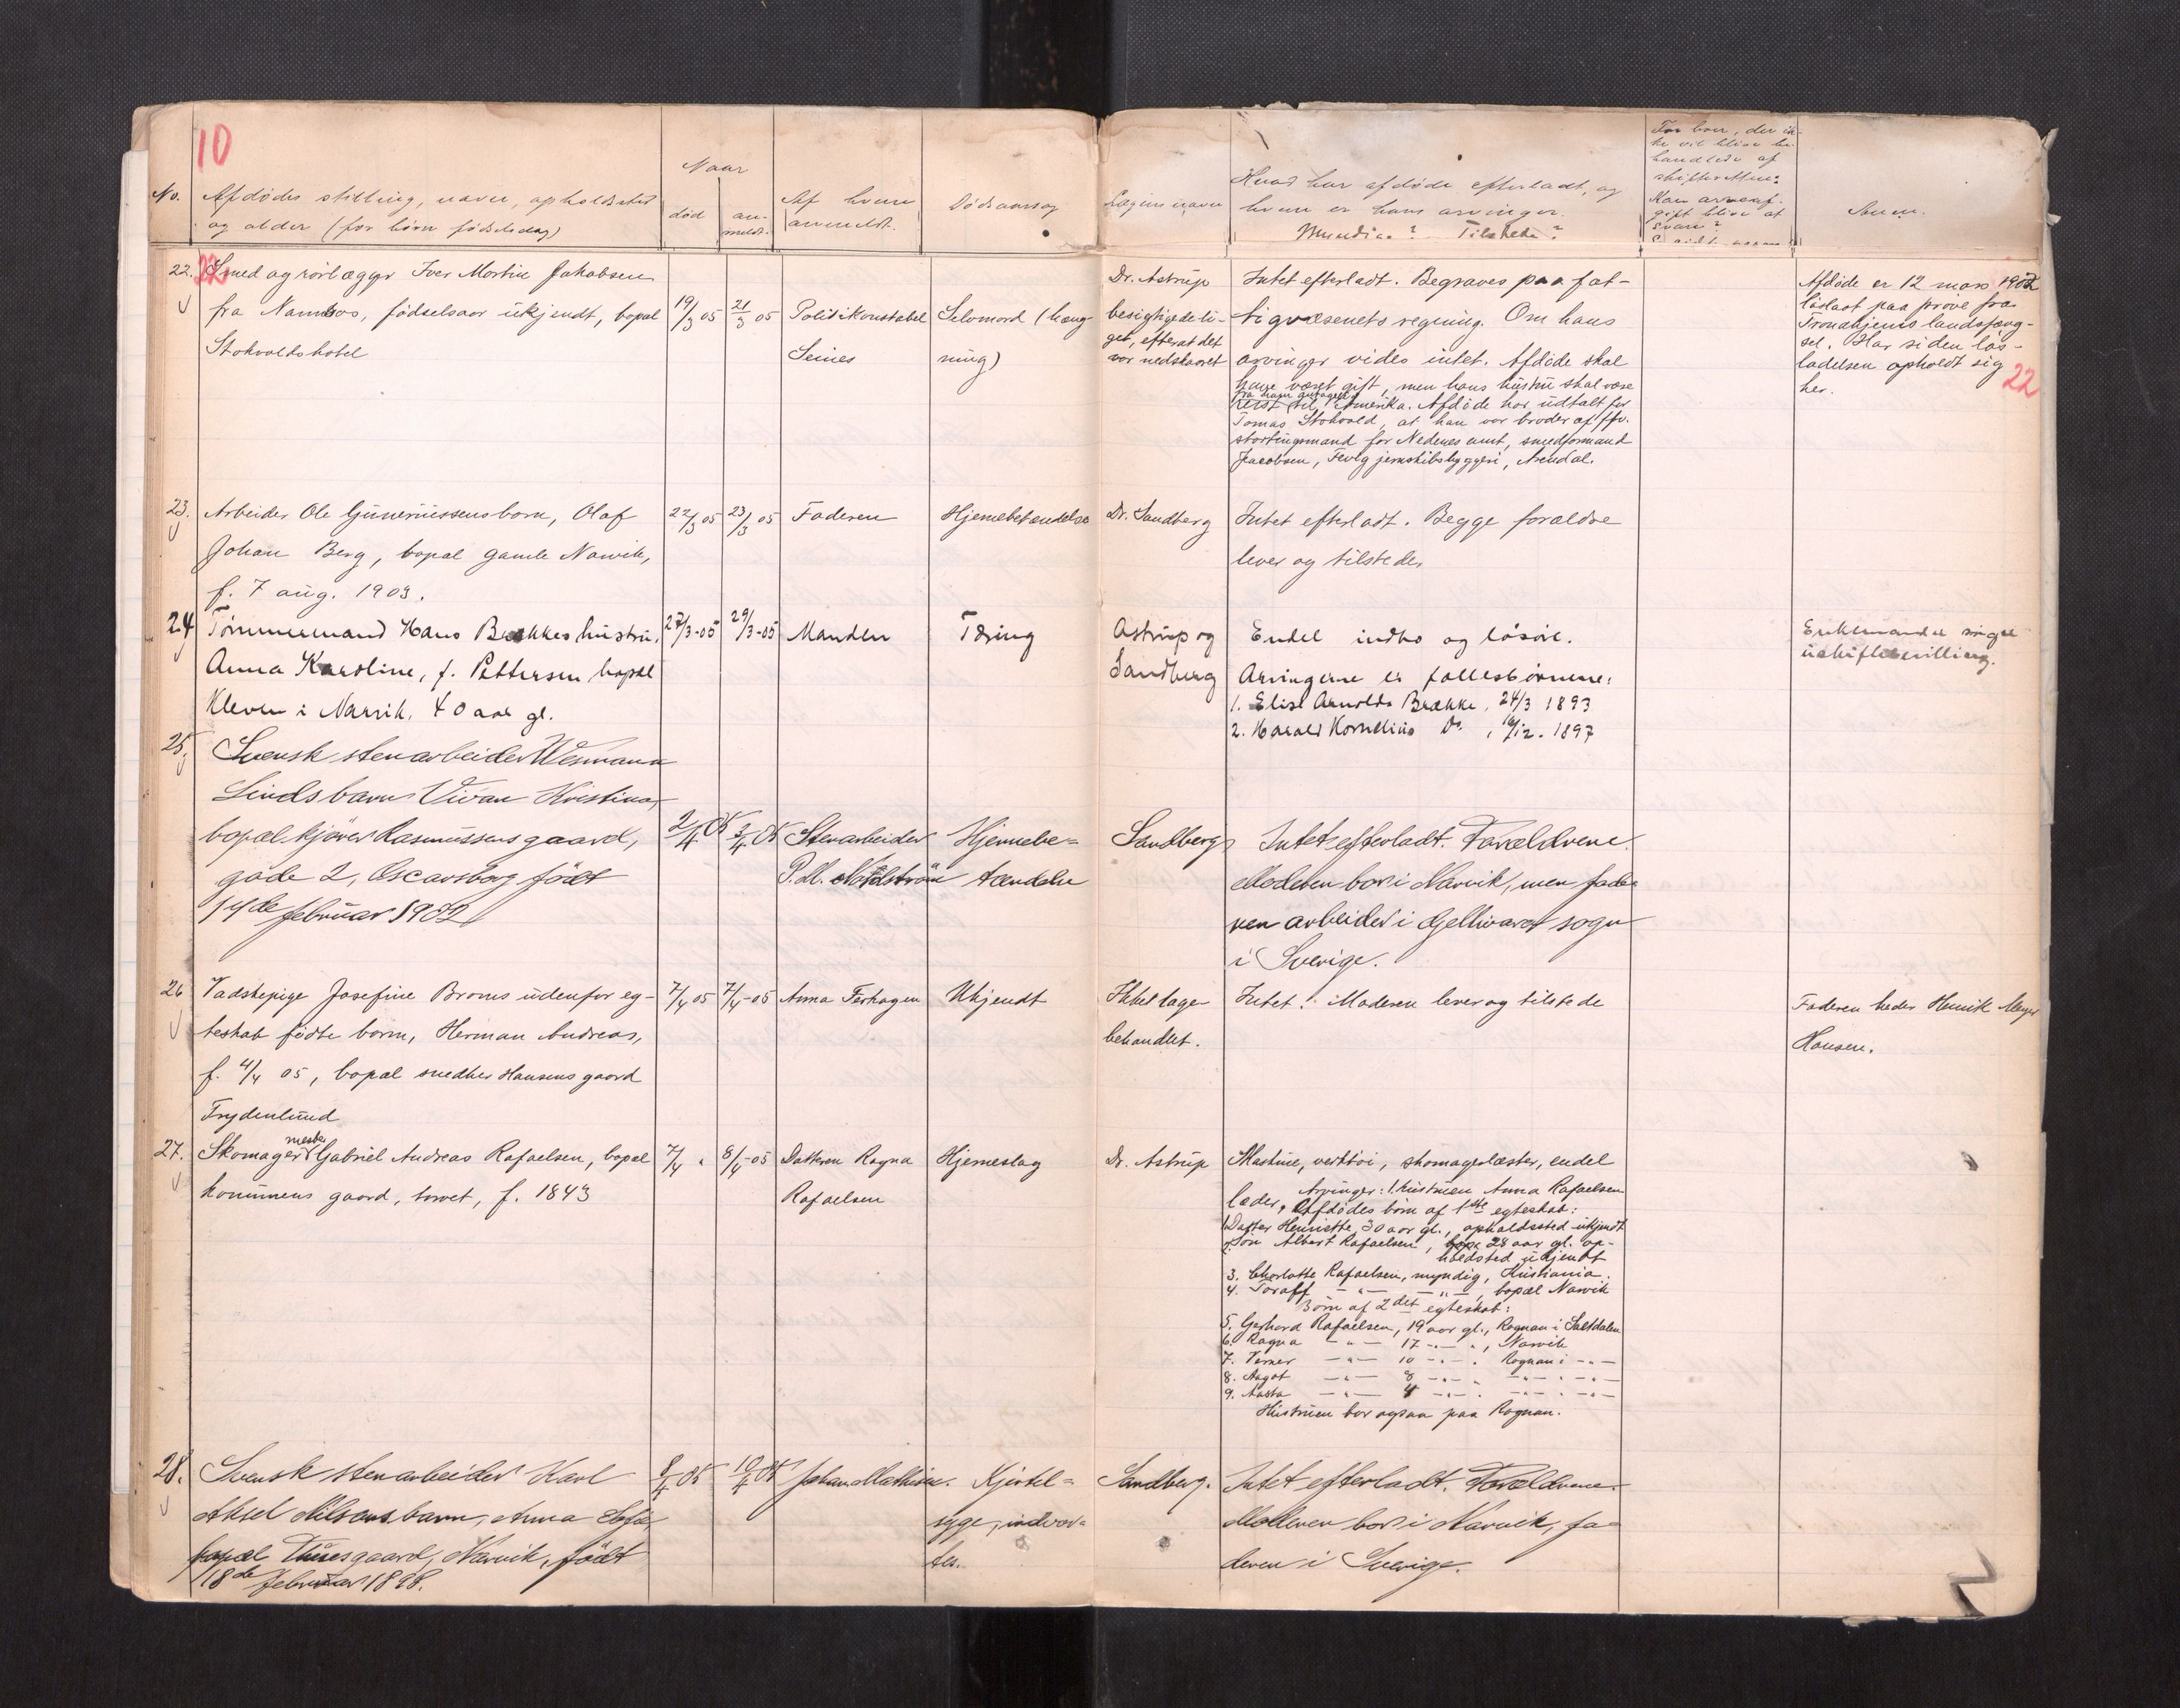 10
No.
Afdødes stilling, navn, opholdssted
og alder (for børn fødselsdag)
Naar
død
an-
meldt.
Af hvem
anmeldt.
Dødsaarsag
Lægens navn
Hvad har afdøde efterladt, og
hvem er hans arvinger.
Myndige? Tilstede?
For boer, der ik-
ke vil blive be-
handlede af
skifteretten:
Kan arveaf-
gift blive at
svare?
Anm.
22.
22
Smed og rørlægger Iver Martin Jakobsen
fra Namsos, fødselsaar ukjendt, bopæl
Stokvolds hotel
19/3 05
21/3 05
Politikonstabel
Seines
Selvmord (hæng-
ning)
Dr. Astrup
besigtigede li-
get, efterat det
var nedskaaret
Intet efterladt. Begraves paa fat-
tigvæsenets regning. Om hans
arvinger vides intet. Afdøde skal
have været gift, men hans hustru skal være
fra ham
reist til Amerika. Afdøde har udtalt for
Tomas Stokvold, at han var broder af ffv.
stortingsmand for Nedenes amt, smedformand
Jacobsen, Fevig jernskibsbyggeri, Arendal.
Afdøde er 12 mars 1902
løsladt paa prøve fra
Trondhjems landsfæng-
sel. Har siden løs-
ladelsen opholdt sig
her.
22
23.
Arbeider Ole Guneriussens barn, Olaf
Johan Berg, bopæl gamle Narvik,
f. 7 aug. 1903.
22/3 05
23/3 05
Faderen
Hjernebetændelse
Dr. Sandberg
Intet efterladt. Begge forældre
lever og tilstede.
24
Tømmermand Hans Brækkes hustru,
Anna Karoline, f. Pettersen, bopæl
Kleven i Narvik, 40 aar gl.
27/3-05
29/3-05
Manden
Tæring
Astrup og
Sandberg
Endel indbo og løsøre.
Arvingerne er fællesbørnene:
1. Elise Arnolda Brække, 24/3 1893
2. Harald Kornelius Do. , /12. 1897
Enkemanden søger
uskiftebevilling.
25.
Svensk stenarbeider Wesmann
Linds barn Vivan Kristina,
bopæl kjører Rasmussens gaard,
gade 2, Oscarsborg, født
14de februar 1902
2/4 05
3/4 05
Stenarbeider
P. M. Nordström
Hjernebe-
tændelse
Sandberg
Intet efterladt. Forældrene.
Moderen bor i Narvik, men fade-
ren arbeider i Gellivara sogn
i Sverige.
26
Vadskepige Josefine Broms udenfor eg-
teskab fødte barn, Herman Andreas,
f. 4/4 05, bopæl snedker Hansens gaard
Frydenlund
7/4 05
7/4-05
Anna Forhagen
Ukjendt
Ikke læge-
behandlet.
Intet. Moderen lever og tilstede
Faderen heder Henrik Meyer
Hansen.
27.
mester
Skomager Gabriel Andreas Rafaelsen, bopæl
kommunens gaard, torvet, f. 1843
7/4 "
8/4-05
Datteren Ragna
Rafaelsen
Hjerneslag
Dr. Astrup
Maskine, verktøi, skomagerlæster, endel
Arvinger: 1. hustruen Anna Rafaelsen
læder. Afdødes børn af 1ste egteskab:
1. Datter Henriette, 30 aar gl., opholdssted ukjendt
2. Søn Albert Rafaelsen, 28 aar gl. op-
holdsted ukjendt
3. Charlotte Rafaelsen, myndig, Kristiania.
4. Toralf — " — — " —, bopæl Narvik
Børn af 2det egteskab:
5. Gerhard Rafaelsen, 19 aar gl., Rognan i Saltdalen
6. Ragna — " — 17 - " - ", Narvik
7. Verner — " — 10 - " - . Rognan i - " -
8. Aagot — " — 8 - " - " - " - - " -
9. Aasta — " — 4 - " - . - " - - " -
Hustruen bor ogsaa paa Rognan.
28.
Svensk stenarbeider Karl
Aksel Nilsens barn, Anna Sofie,
bopæl Thuesgaard, Narvik, født
18de februar 1898.
8/4 05
10/4 05
Johan Mathisen.
Kjertel-
syge, indvor-
tes.
Sandberg.
Intet efterladt. Forældrene.
Moderen bor i Narvik, fa-
deren i Sverige.